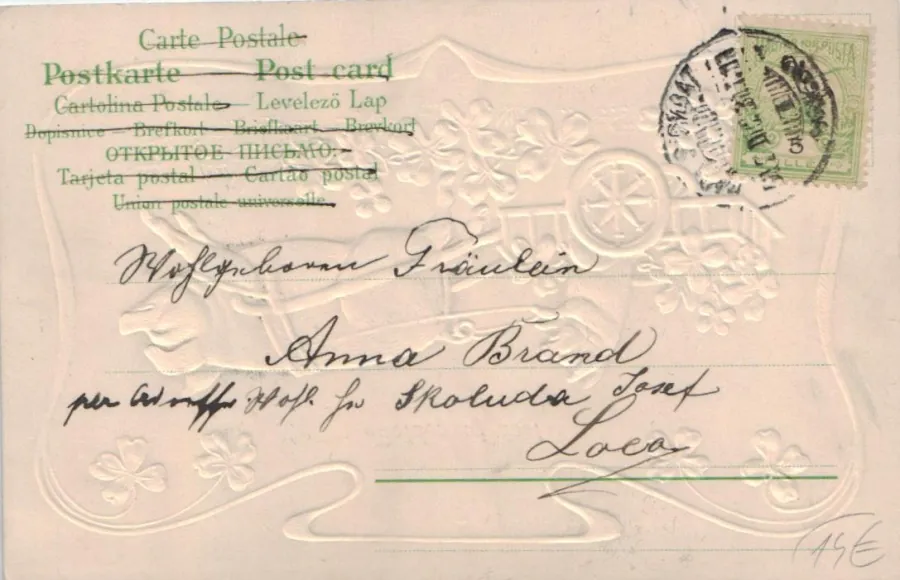 Carte Postale
Postkarte Post card
Cartolina Postale Levelező Lap
Dopisnice - Brefkort - Briefkaart - Brevkort
ОТКРЫТОЕ ПИСЬМО.
Tarjeta postal - Cartão postal
Union postale universelle.
Wohlgeboren Fräulein
Anna Brand
per Wohl. Hr Skoluda Josef
Loco
14€